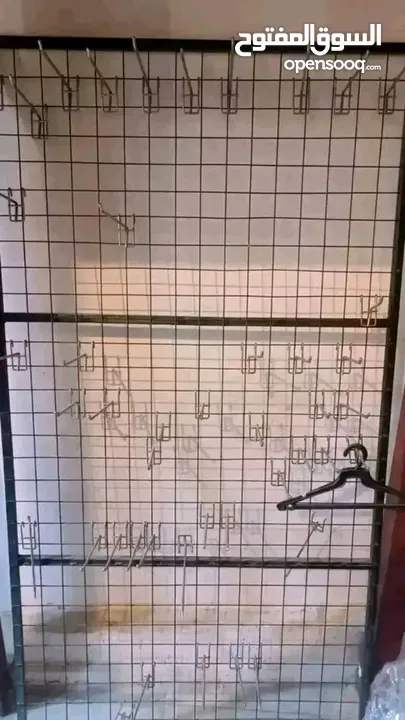 السوق المفتوح
opensooq.com